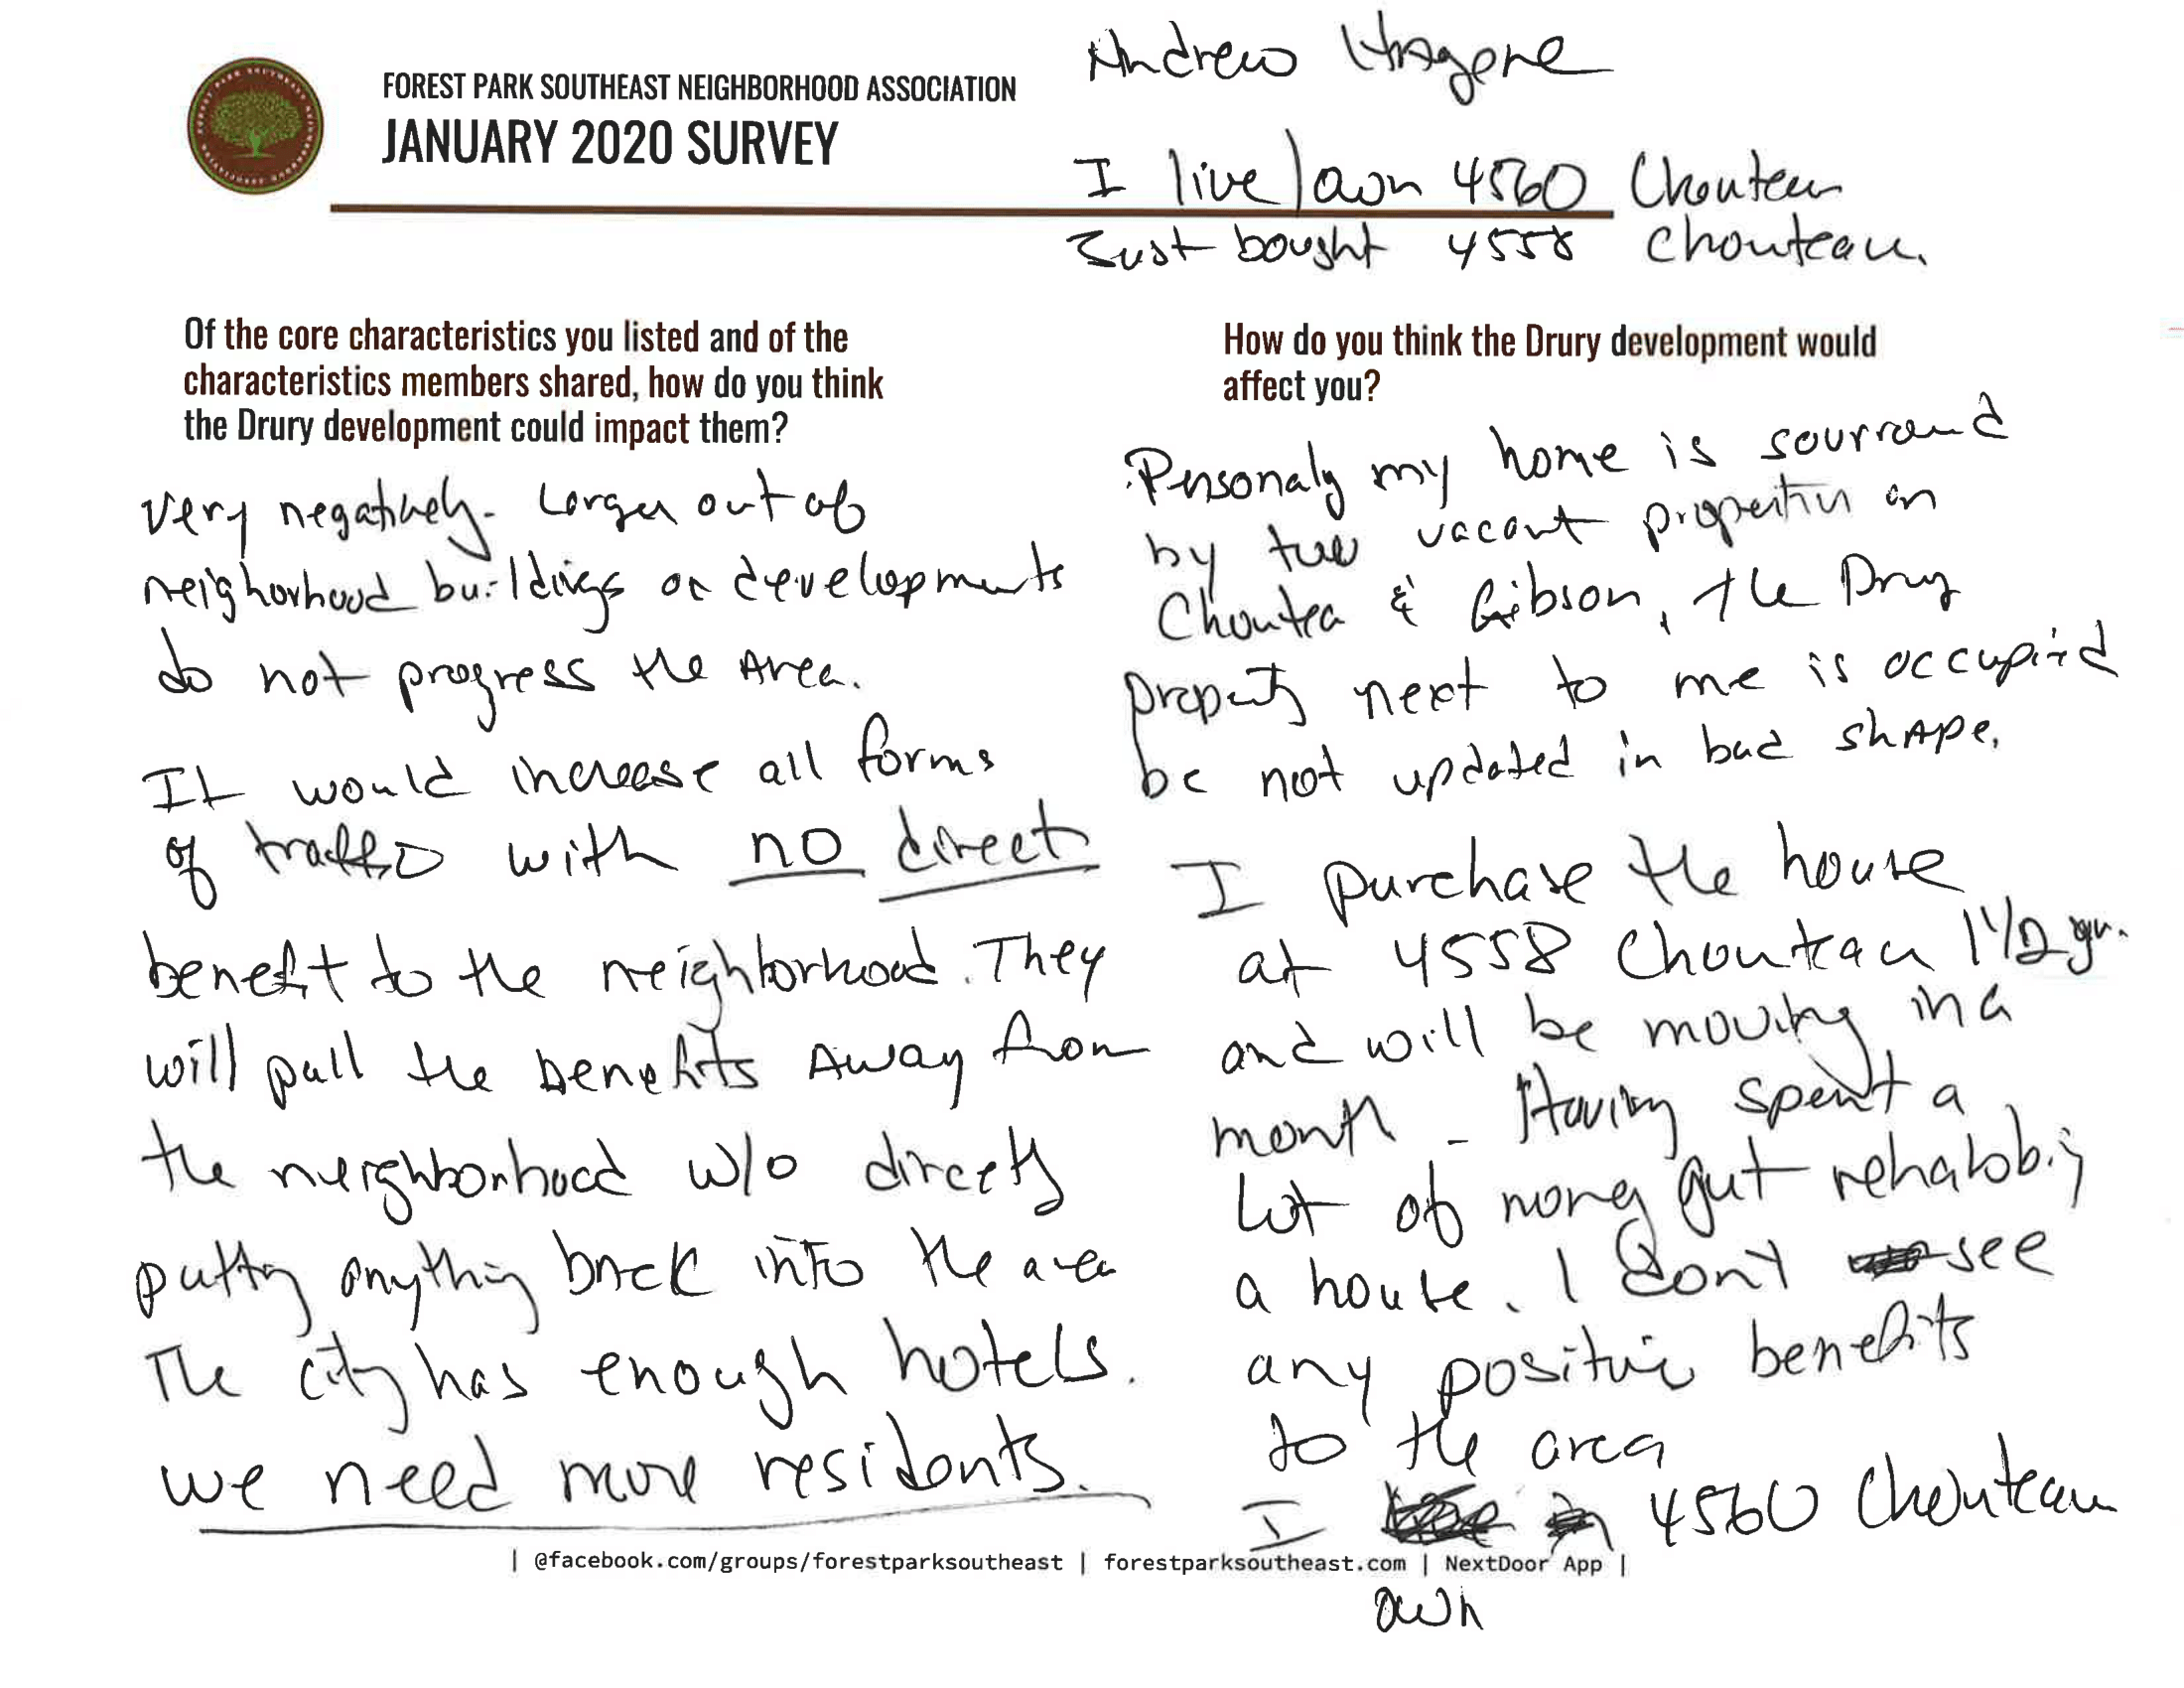 FOREST PARK SOUTHEAST NEIGHBORHOOD ASSOCIATION
JANUARY 2020 SURVEY
Andrew
I live/own 4560 Chouteau
Just bought 4558 Chouteau.
Of the core characteristics you listed and of the
characteristics members shared, how do you think
the Drury development could impact them?
very negatively. Larger out of
neighorhood buildings or developments
do not progress the Area.
It would increase all forms
of traffic with no direct
benefit to the neighborhood. They
will pull the benefits Away from
the neighborhood w/o directly
puttng anything back into the area
The city has enough hotels.
we need more residents.
How do you think the Drury development would
affect you?
Personaly my home is sourround
by two vacant properties on
Choutea & Gibson, the Drury
property next to me is occupied
be not updated in bad shape.
I purchase the house
at 4558 Chouteau 1 1/2 yr.
and will be moving in a
month - Having spent a
Lot of money gut rehabbing
a house. I don't see
any positive benefits
to the area
I own 4560 Chouteau
| @facebook.com/groups/forestparksoutheast | forestparksoutheast.com | NextDoor App |